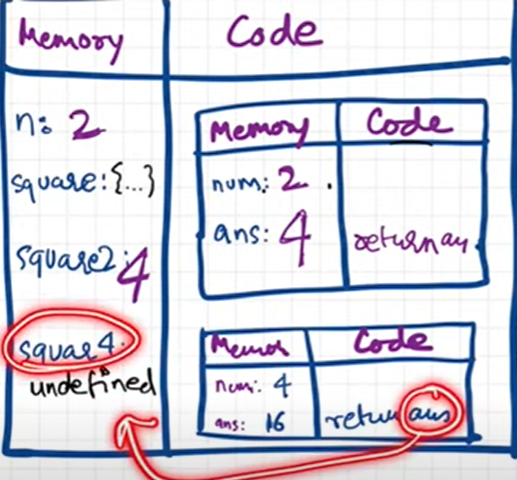 Memory
Code
n: 2
square:{...}
square2: 4
squar4.
undefined
Memory
Code
num: 2
ans: 4
return an
Memor
Code
num: 4
ans: 16
return ans